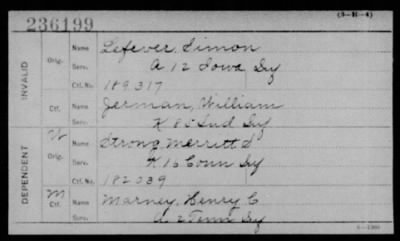 236199
(3-H-4)
INVALID
Orig.
Name Lefever, Simon
Serv. A 12 Iowa Inf
Ctf. No. 189317
Ctf.
Name Jerman, William
Serv. K 85 Ind Inf
DEPENDENT
W
Orig.
Name Strong, Merritt D
Serv. K 16 Conn Inf
Ctf. No. 182039
M
Ctf.
Name Marney, Henry C
Serv. A 2 Tenn Inf